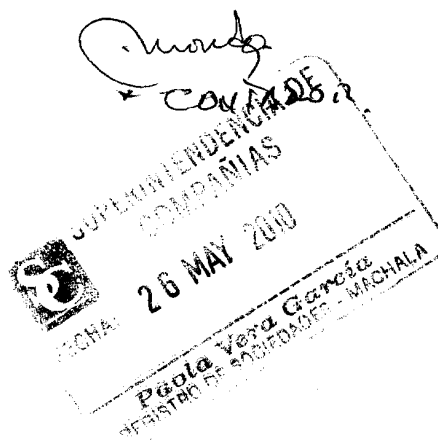 * CONTADOR.
SUPERINTENDENCIA DE
COMPAÑIAS
SC
FECHA:
26 MAY 2010
Paola Vera García
REGISTRO DE SOCIEDADES - MACHALA